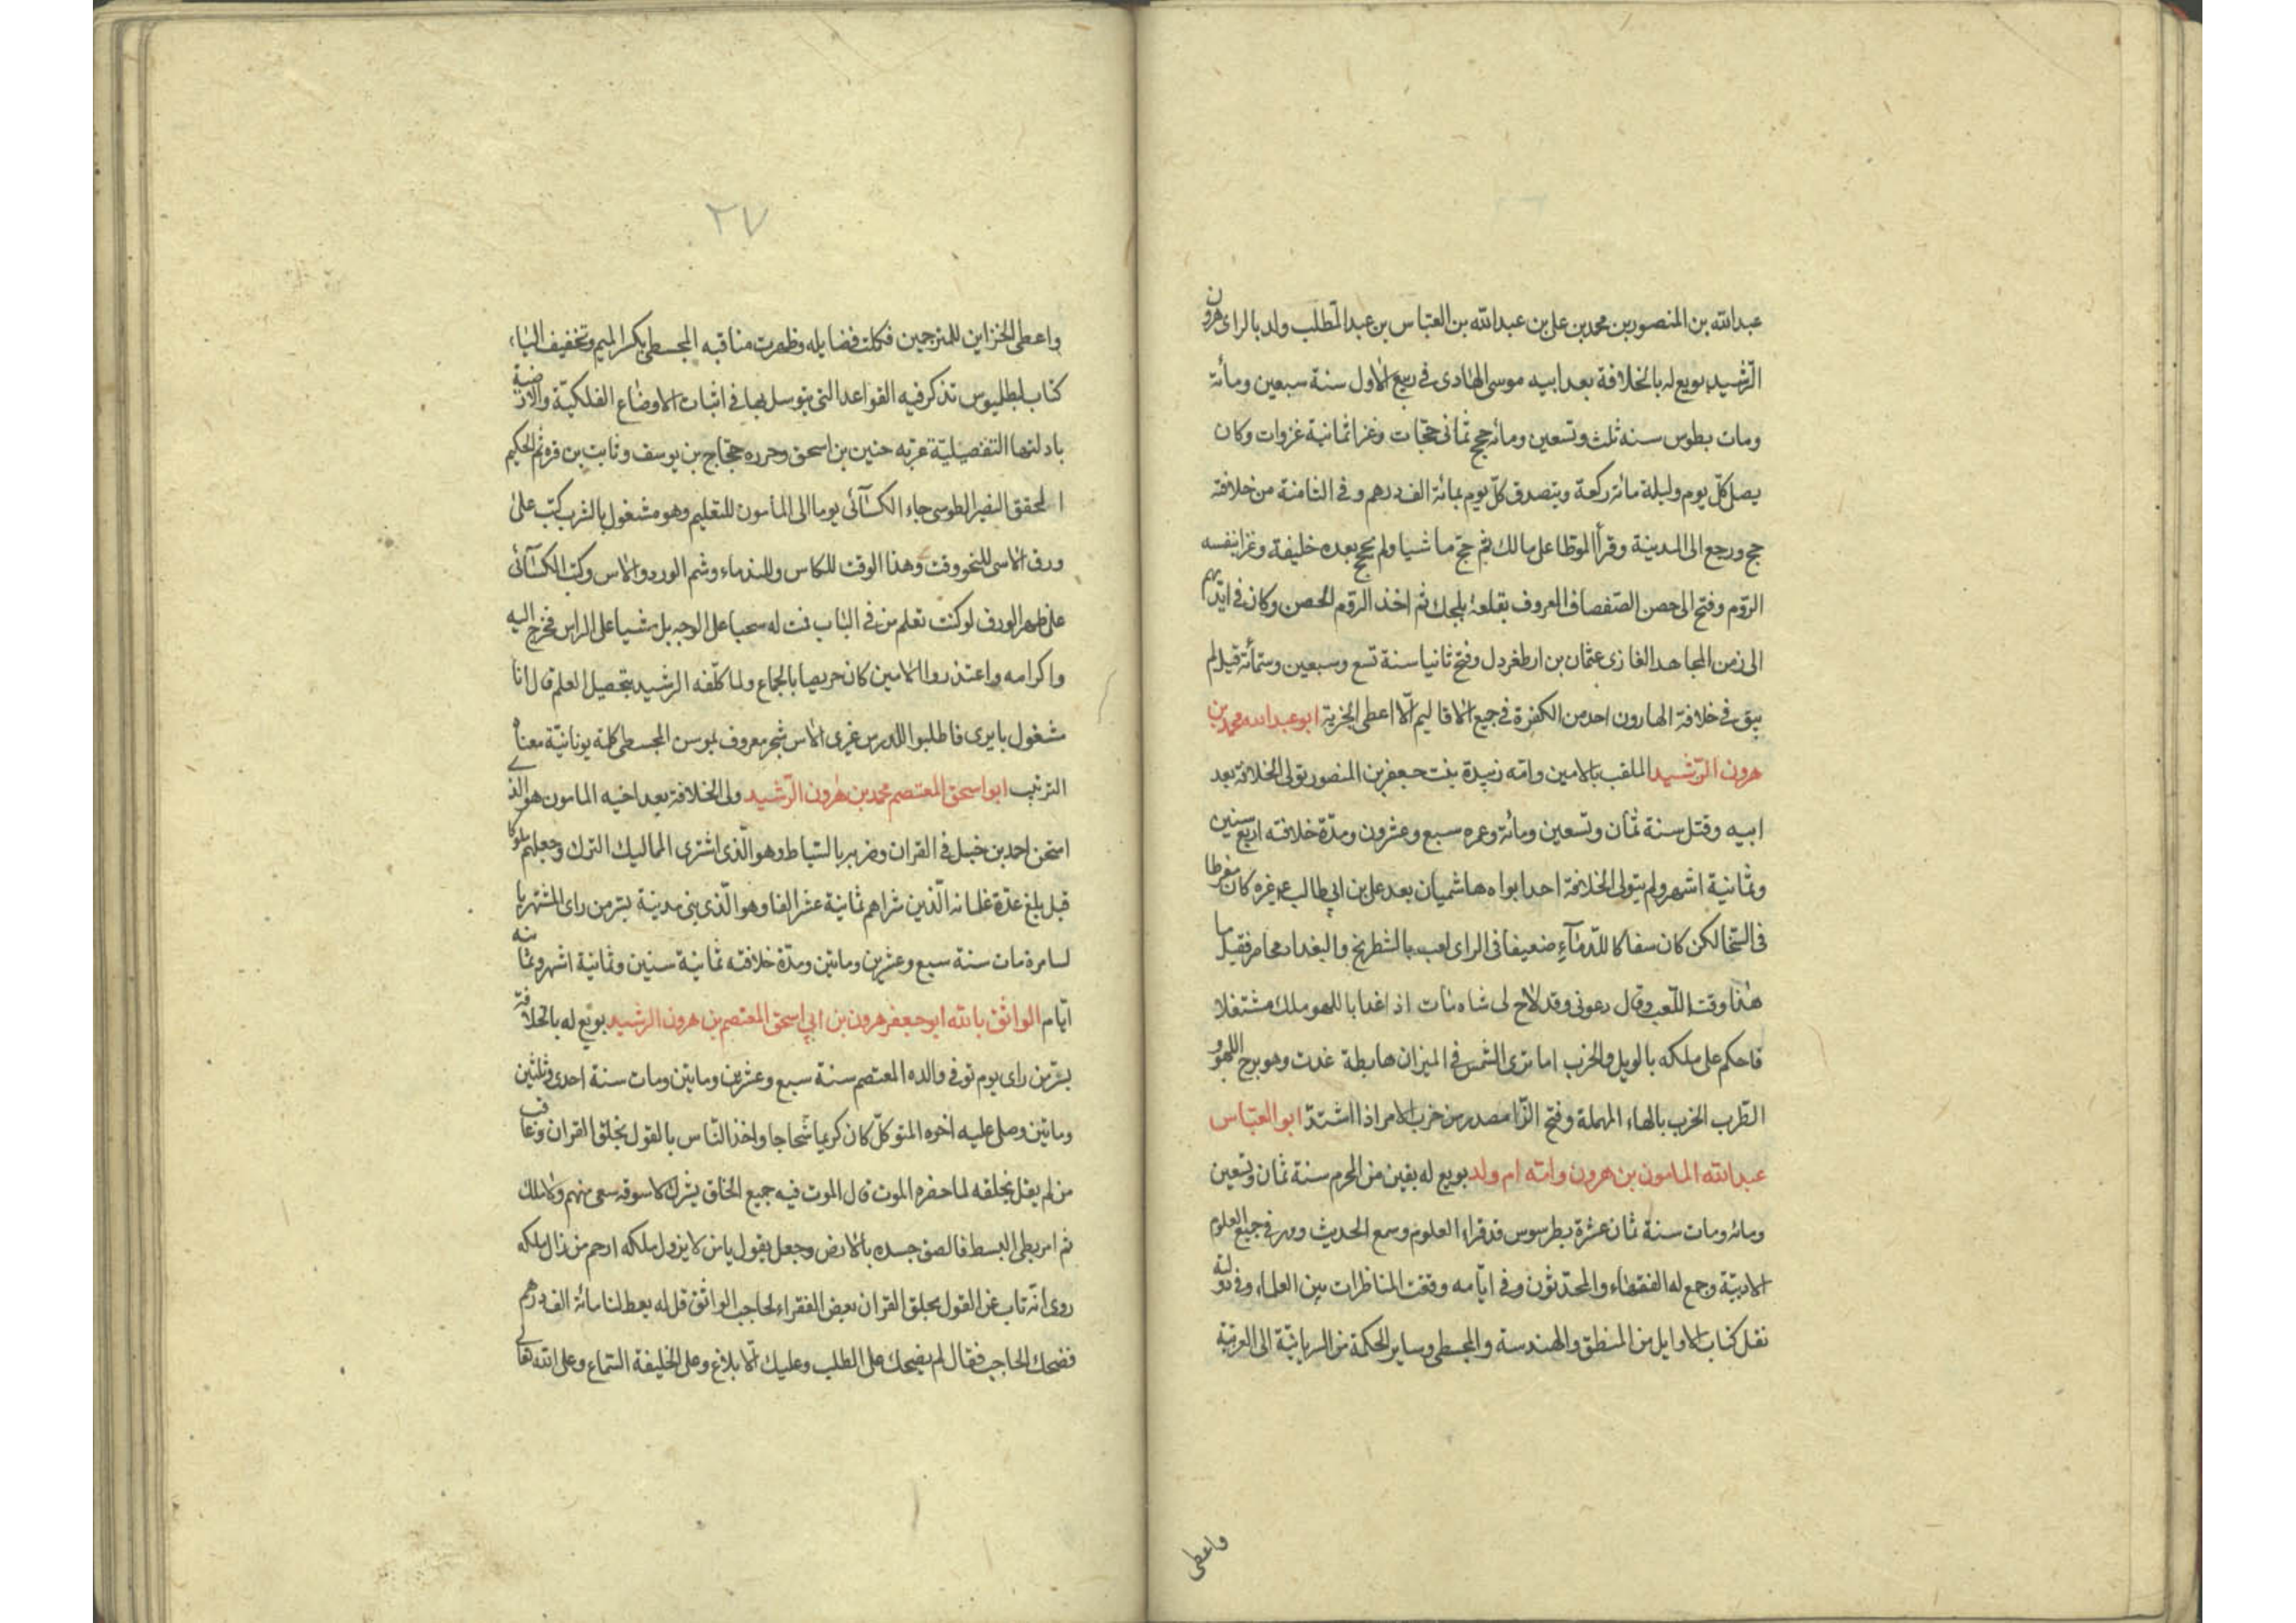 عبدالله بن المنصور بن محمد بن على بن عبدالله بن العباس بن عبدالمطلب ولد بالراى هرون
الرّشيد بويع له بالخلافة بعد ابيه موسى الهادى فى ربيع الاول سنة سبعين ومائة
ومات بطوس سنه ثلث وتسعين ومائه حج ثمانى حجّات وغزا ثمانية غزوات وكان
يصل كلّ يوم وليلة مائة ركعة ويتصدق كلّ يوم بمائة الف درهم وفى الثامنة من خلافته
حج ورجع الى المدينة وقرأ الموطّا على مالك ثم حجّ ماشيا ولم يحج بعده خليفة وغزا بنفسه
الرّوم وفتح الى حصن الصّفصاف المعروف بقلعة بلجك ثم اخذ الرّوم الحصن وكان فى ايديهم
الى زمن المجاهد الغازى عثمان بن ارطغردل وفتح ثانيا سنة تسع وسبعين وستمائة قيل لم
يبق فى خلافة الهارون احد من الكفرة فى جميع الاقاليم الّا اعطى الجزية ابو عبدالله محمد بن
هرون الرّشيد الملقب بالامين وامّه زبيدة بنت جعفر بن المنصور تولى الخلافة بعد
ابيه وقتل سنة ثمان وتسعين ومائة وعمره سبع وعشرون ومدّة خلافته اربع سنين
وثمانية اشهر ولم يتولى الخلافة احد ابواه هاشميان بعد على بن ابى طالب غيره كان مفرطا
فى السّخا لكن كان سفاكا للدّماء ضعيفا فى الراى لعب بالشطرنج والبغداد محاصر فقيل ما
هذا وقت اللّعب وقال دعونى وقد لاح لى شاه مات اذ اغدا باللهو ملك مشتغلا
فاحكم على ملكه بالويل والحرب اما ترى الشّمس فى الميزان هابطة غدت وهو برج اللهو و
الطّرب الحرب بالهاء المهملة وفتح الرّا مصدر من حرب الامر اذا اشتدّ ابو العبّاس
عبدالله المامون بن هرون وامّه ام ولد بويع له بقين من المحرم سنة ثمان وتسعين
ومائه ومات سنة ثمان عشرة بطرسوس قد قراء العلوم وسمع الحديث ومهر فى جميع العلوم
الادبيّة وجمع له الفقهاء والمحدّثون وفى ايّامه وقعت المناظرات بين العلماء وفى دولته
نقل كتاب الاوايل من المنطق والهندسة والمجسطى وساير الحكمة من السريانيّة الى العربيّة
واعطى
٢٧
واعطى الخزاين للمترجمين فكملت فضايله وظهرت مناقبه المجسطى بكسر الميم وتخفيف الياء
كتاب لبطلميوس تذكر فيه القواعد التى يتوسل بها فى اثبات الاوضاع الفلكيّة والارضية
بادلتها التفصيليّة عربه حنين بن اسحق وحرره حجّاج بن يوسف وثابت بن قره ثم الحكيم
المحقق النصير الطوسى جاء الكسائى يوما الى المأمون للتعليم وهو مشغول بالشرب كتب على
ورق الاس للنحو وقت وهذا الوقت للكاس وللندماء وشم الورد والاس وكتب الكسائى
على ظهر الورق لو كنت تعلم من فى الباب قمت له سحبا على الوجه بل مشيا على الراس فخرج اليه
واكرامه واعتذر والامين كان حريصا بالجماع ولما كلّفه الرشيد بتحصيل العلم قال انا
مشغول بايرى فاطلبوا للدرس غيرى الاس شجر معروف بموسن المجسطى كلمة يونانيّة معناه
الترتيب ابو اسحق المعتصم محمد بن هرون الرّشيد ولى الخلافة بعد اخيه المامون هو الذى
امتحن احمد بن حنبل فى القران وضربه بالسّياط وهو الّذى اشترى المماليك الترك وجعلهم ملوكا
قيل بلغ عدّة غلمانه الّذين شراهم ثمانية عشر الفا وهو الّذى بنى مدينة بسرّ من راى المشتهر با
لسامرة مات سنة سبع وعشرين وماتين ومدّة خلافته ثمانية سنين وثمانية اشهر وثمانيه
ايّام الواثق بالله ابو جعفر هرون بن ابى اسحق المعتصم بن هرون الرشيد بويع له بالخلافة
بسرّ من راى يوم توفى والده المعتصم سنة سبع وعشرين وماتين ومات سنة احدى وثلثين
وماتين وصلى عليه اخوه المتوكّل كان كريما شحاجا واخذ النّاس بالقول بخلق القران وعاقب
من لم يقل بخلقه لما حضره الموت قال الموت فيه جميع الخلق يشترك لا سوقه منهم ولا ملك
ثم امر بطى البسط فالصق جسده بالارض وجعل يقول يا من لا يزول ملكه ارحم من زال ملكه
روى انّه تاب عن القول بخلق القران بعض الفقراء لحاجب الواثق قل له يعط لنا مائة الف درهم
فضحك الحاجب فقال لم يضحك على الطلب وعليك الابلاغ وعلى الخليفة السّماع وعلى الله تعالى